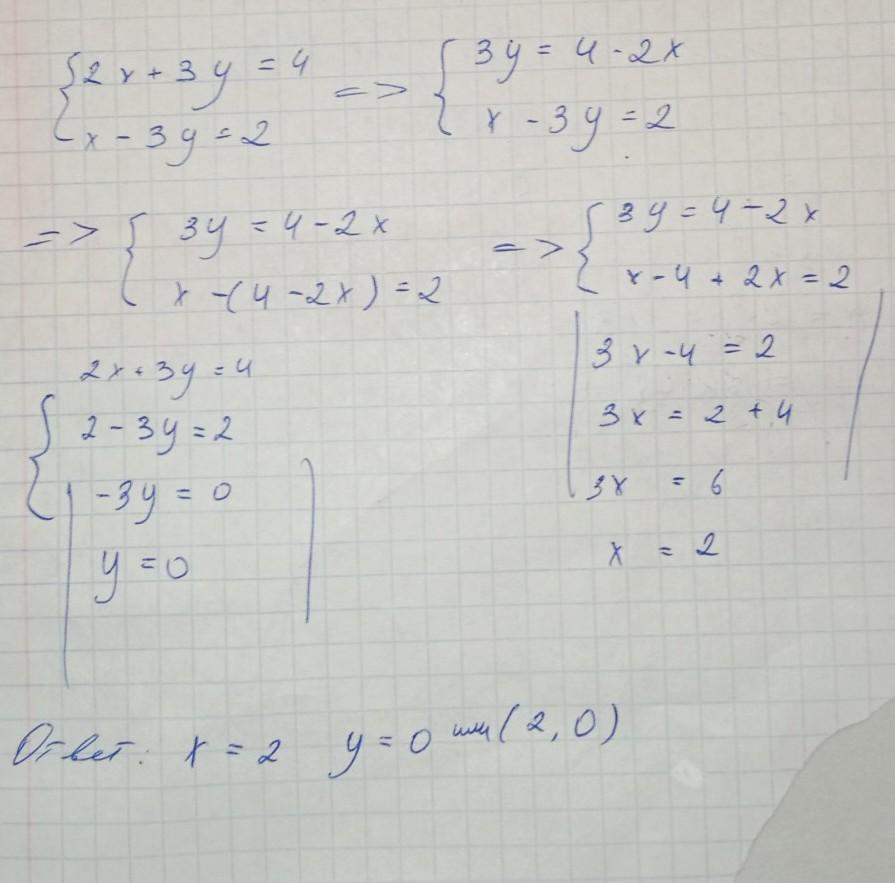 { 2x + 3y = 4 => { 3y = 4 - 2x
x - 3y = 2 x - 3y = 2
=> { 3y = 4 - 2x => { 3y = 4 - 2x
x - (4 - 2x) = 2 x - 4 + 2x = 2
3x - 4 = 2
3x = 2 + 4
3x = 6
x = 2
{ 2x + 3y = 4
2 - 3y = 2
-3y = 0
y = 0
Ответ: x = 2 y = 0 или (2, 0)